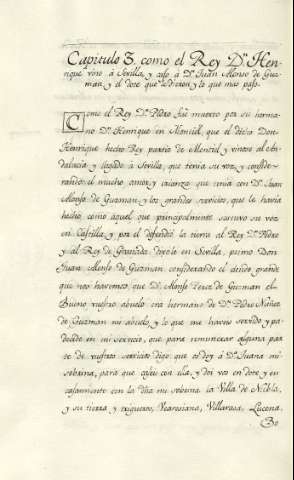 Capitulo 3. como el Rey Dn. Hen-
rique vino á Sevilla, y caso á Dn. Juan Alonso de Guz-
man, y el dote que le dieron, y lo que mas paso.
Como el Rey Dn. Pedro fué muerto por su herma-
no Dn. Henrique en Montiel, que el dicho Don
Henrique hecho Rey partio de Montiel, y vinose al An-
dalucia y llegado á Sevilla, que tenia su voz, y conside-
rando el mucho amor, y crianza que tenia con Dn. Juan
Alonso de Guzman y los grandes servicios, que le havia
hecho como aquel que principalmente sostuvo su voz
en Castilla, y por el defendió la tierra al Rey Dn. Pedro
y al Rey de Granada; dixole en Sevilla, primo Don
Juan Alonso de Guzman considerando el deudo grande
que nos havemos, que Dn. Alonso Perez de Guzman el
Bueno vuestro abuelo era hermano de Dn. Pedro Nuñez
de Guzman mi abuelo, y lo que me haveis servido y pa-
decido en mi servicio, que para remunerar alguna par-
te de vuestro servicio digo que os doy á Da. Juana mi
sobrina, para que caseis con ella, y doi vos en dote y en
casamiento con la dicha mi sobrina la Villa de Niebla,
y su tierra, y trigueros, Vearosiana, Villarasa, Lucena,
Bo